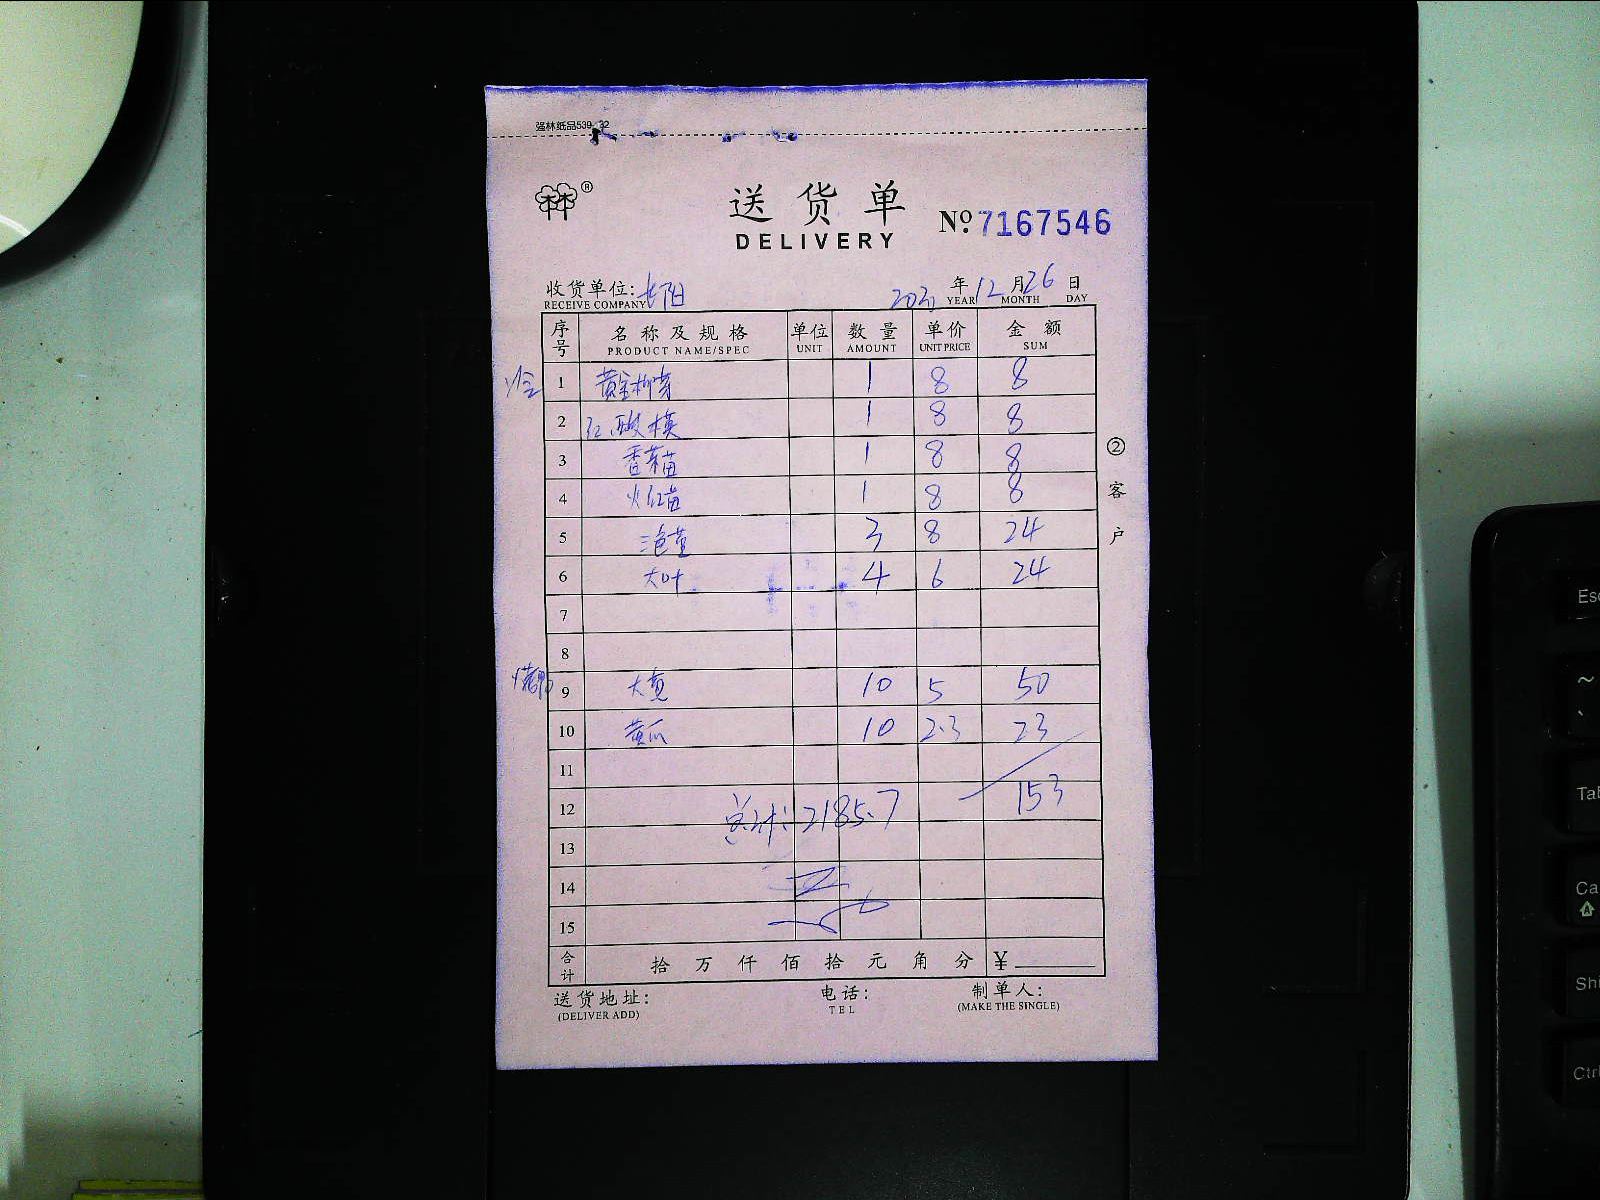 强林纸品539-32
®
送货单
DELIVERY
№ 7167546
收货单位: 长阳
RECEIVE COMPANY
年 12 月 26 日
YEAR MONTH DAY
序号 名称及规格 单位 数量 单价 金额
PRODUCT NAME/SPEC UNIT AMOUNT UNIT PRICE SUM
1 1 8 8
2 红酸模 1 8 8
3 香菜苗 1 8 8
4 火红苗 1 8 8
5 三色堇 3 8 24
6 大叶 4 6 24
7
8
9 大 10 5 50
10 黄瓜 10 2.3 23
11
12 153
总计: 2185.7
13
14
15
合计 拾 万 仟 佰 拾 元 角 分 ¥
② 客户
送货地址: 电话: 制单人:
(DELIVER ADD) TEL (MAKE THE SINGLE)
Esc
~
Tab
Ca
Shi
Ctrl